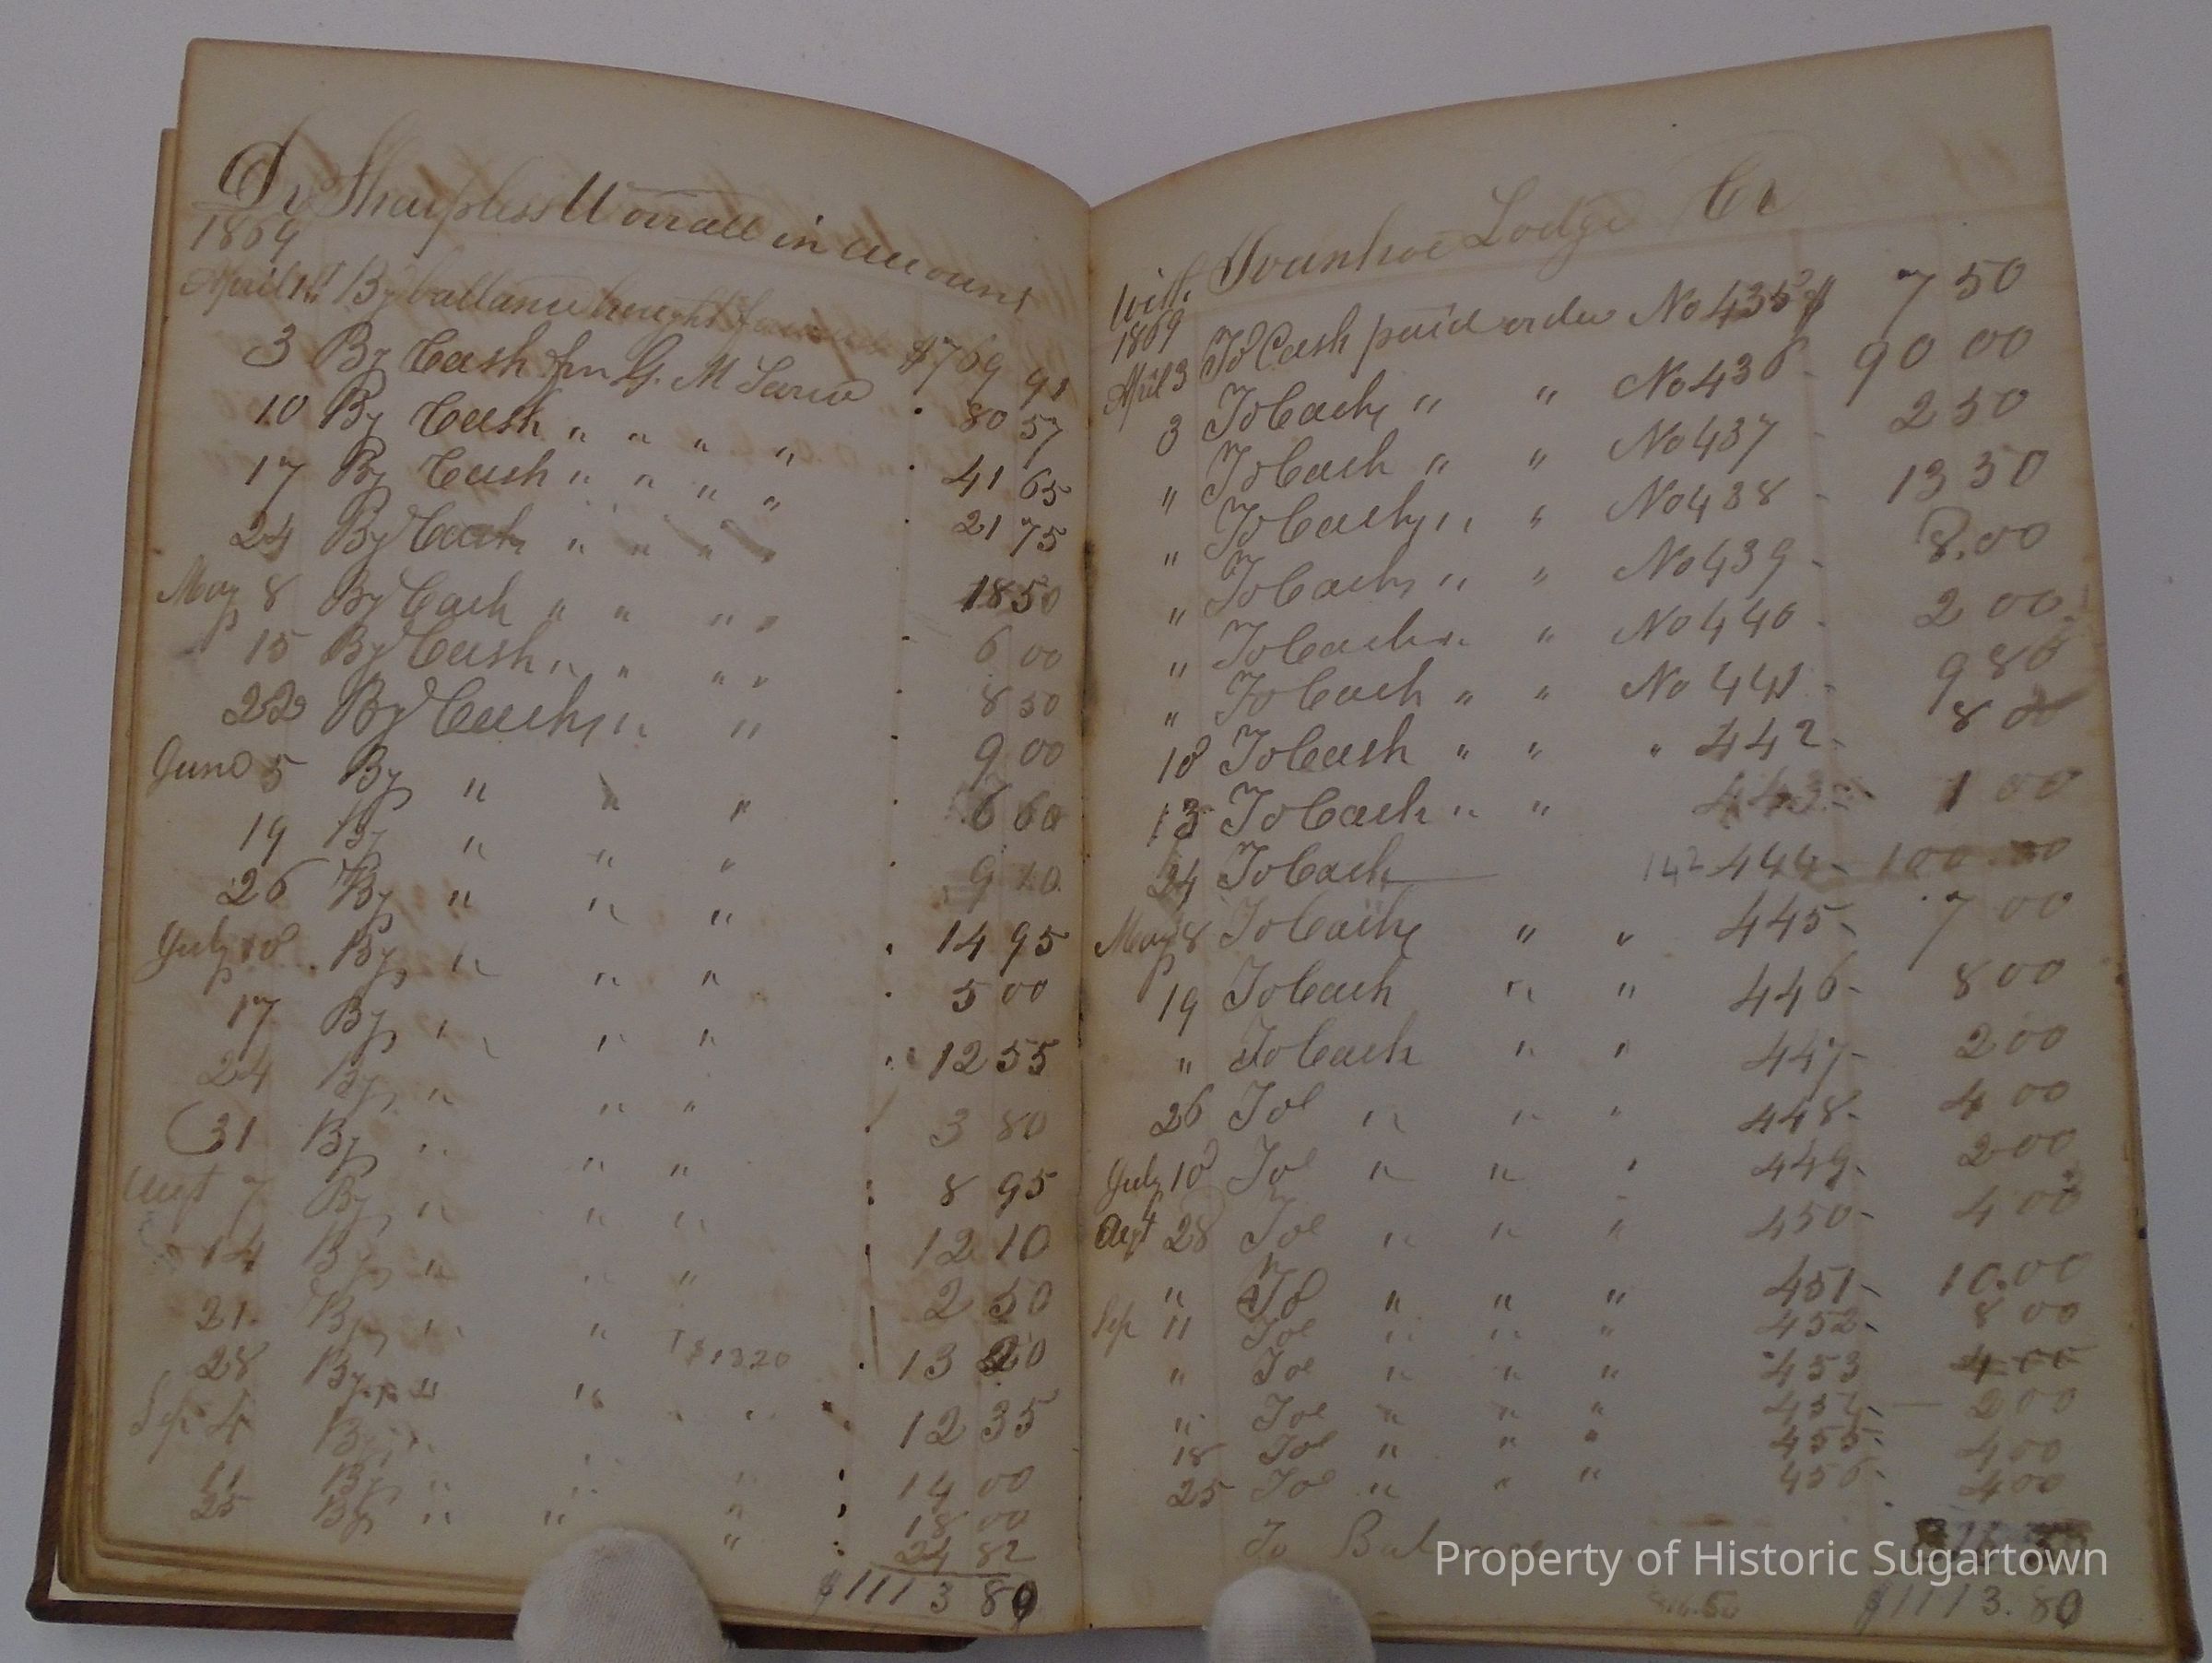 Dr Sharpless Worrall in account
1869
April 1st By ballance brought $769 91
3 By Cash fm G. M 80 57
10 By Cash " " " " 41 65
17 By Cash " " " " 21 75
24 By Cash " " " " 18 50
May 8 By Cash " " " " 6 00
15 By Cash " " " " 8 50
22 By Cash " " 9 00
June 5 By " " " 6 60
19 By " " " 9 10
26 By " " " 14 95
July 10 By " " " 5 00
17 By " " " 12 55
24 By " " " 3 80
31 By " " " 8 95
Augt 7 By " " " 12 10
14 By " " 2 50
21 By " " 13 20
$13 20
28 By " " 12 35
Sep 4 By 14 00
11 By " " 18 00
25 By " " " 24 82
$1113 80
with Ivanhoe Lodge Cr
1869
April 3 To Cash paid order No 435 $ 7 50
3 To Cash " " No 436 - 90 00
" To Cash " " No 437 - 2 50
" To Cash " " No 438 - 13 50
" To Cash " " No 439 - 8.00
" To Cash " " No 440 - 2 00
" To Cash " " No 441 - 9 86
10 To Cash " " " 442 - 8 00
13 To Cash " " 443 - 1 00
24 To Cash 444 - 100 00
May 8 To Cash " " 445 - 7 00
19 To Cash " " 446 - 8 00
" To Cash " " 447 - 2 00
26 To " " " 448 - 4 00
July 10 To " " " 449 - 2 00
Augt 28 To " " " 450 - 4 00
" To " " " 451 - 10.00
Sep 11 To " " " 452 - 8 00
" To " " " 453 4 00
" To " " " 454 - 2 00
18 To " " " 455 - 4 00
25 To " " " 456 - 4 00
To
$1113.80
Property of Historic Sugartown